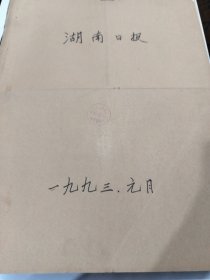 湖南日报
一九九三.元月